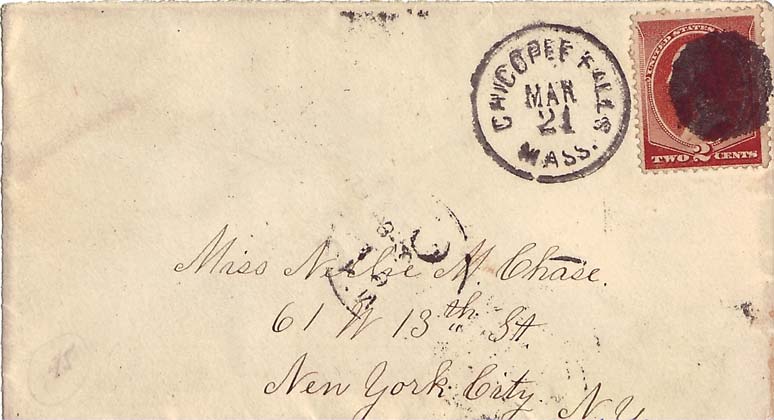 CHICOPEE FALLS
MAR
21
MASS.
UNITED STATES
TWO 2 CENTS
Miss Nellie M. Chase.
61 W 13th St
New York City
N.Y.
15